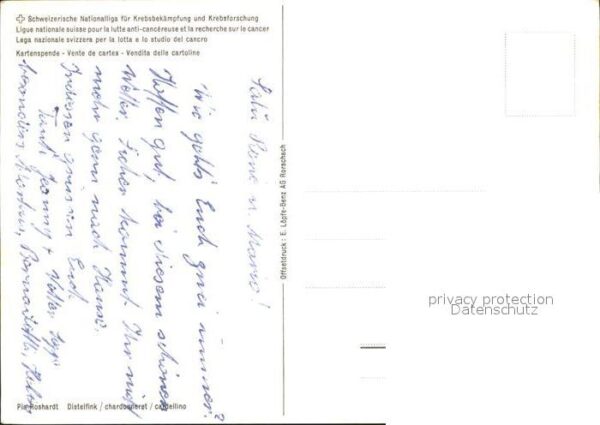 Schweizerische Nationalliga für Krebsbekämpfung und Krebsforschung
Ligue nationale suisse pour la lutte anti-cancéreuse et la recherche sur le cancer
Lega nazionale svizzera per la lotta e lo studio del cancro
Kartenspende - Vente de cartes - Vendita delle cartoline
Salü René u. Mario!
Wie gehts Euch zwei immer?
Hoffen gut, bei diesem schönen
Wetter. Sicher kommt Ihr nicht
mehr gern nach Hause.
Indessen grüssen Euch
Tanti Jenny + Walter
Offsetdruck: E. Löpfe-Benz AG Rorschach
privacy protection
Datenschutz
Pia Roshardt Distelfink / chardonneret / cardellino